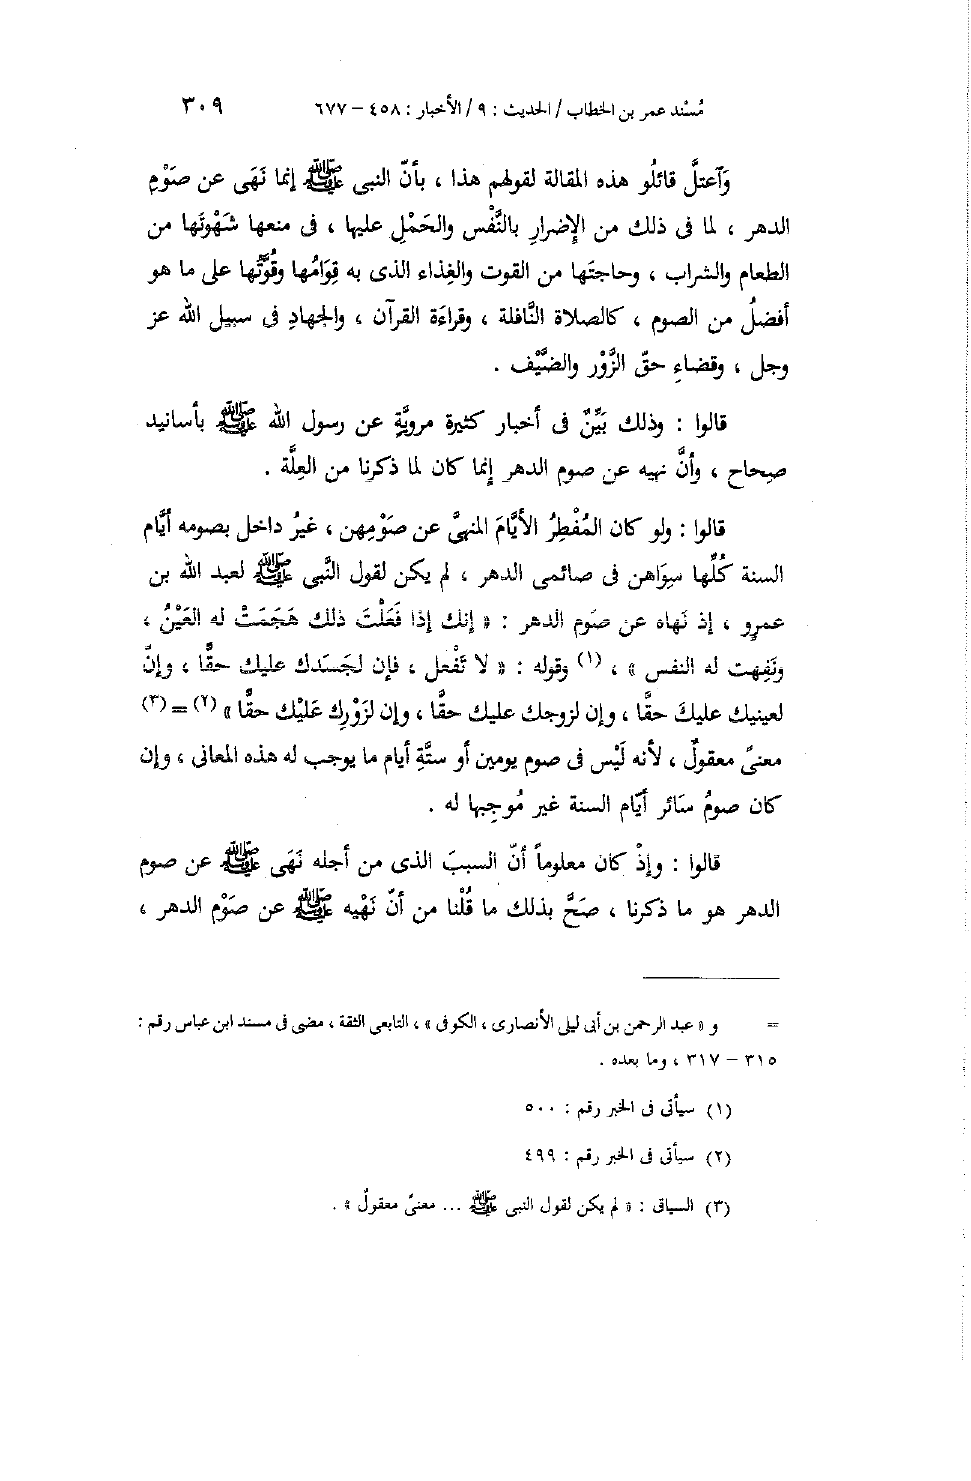 مُسْند عمر بن الخطاب / الحديث : ٩ / الأخبار : ٤٥٨ – ٦٧٧ ٣٠٩
وَآعتلَّ قائلُو هذه المقالة لقولهم هذا ، بأنّ النبى ﷺ إنما نَهَى عن صَوْمِ
الدهر ، لما فى ذلك من الإضرارِ بالنَّفْس والحَمْلِ عليها ، فى منعها شَهْوتَها من
الطعام والشراب ، وحاجتَها من القوت والغِذاء الذى به قِوَامُها وقُوَّتُها على ما هو
أفضلُ من الصوم ، كالصلاة النَّافلة ، وقراءَة القرآن ، والجهادِ فى سبيل الله عز
وجل ، وقضاءِ حقّ الزَّوْر والضَّيْف .
قالوا : وذلك بَيِّنٌ فى أخبار كثيرة مرويَّةٍ عن رسول الله ﷺ بأسانيد
صحاح ، وأنَّ نهيه عن صوم الدهر إنما كان لما ذكرنا من العِلَّة .
قالوا : ولو كان المُفْطِرُ الأيَّامَ المنهىَّ عن صَوْمِهن ، غيرُ داخل بصومه أيَّام
السنة كُلَّها سِوَاهن فى صائمى الدهر ، لم يكن لقول النَّبى ﷺ لعبد الله بن
عمرٍو ، إذ نَهاه عن صَوم الدهر : « إنك إذا فَعَلْتَ ذلك هَجَمَتْ له العَيْنُ ،
ونَفِهت له النفس » ، (١) وقوله : « لا تَفْعل ، فإن لجَسَدك عليك حقًّا ، وإنّ
لعينيك عليكَ حقًّا ، وإن لزوجك عليك حقًّا ، وإن لزَوْرِك عَلَيْك حقًّا » (٢) = (٣)
معنىً معقولٌ ، لأنه لَيْس فى صوم يومين أو ستَّةِ أيام ما يوجب له هذه المعانى ، وإن
كان صومُ سَائر أيّام السنة غير مُوجِبها له .
قالوا : وإذْ كان معلوماً أنّ السببَ الذى من أجله نَهَى ﷺ عن صوم
الدهر هو ما ذكرنا ، صَحَّ بذلك ما قُلْنا من أنّ نَهْيه ﷺ عن صَوْم الدهر ،
= و « عبد الرحمن بن أبى ليلى الأنصارى ، الكوفى » ، التابعى الثقة ، مضى فى مسند ابن عباس رقم :
٣١٥ – ٣١٧ ، وما بعده .
(١) سيأتى فى الخبر رقم : ٥٠٠
(٢) سيأتى فى الخبر رقم : ٤٩٩
(٣) السياق : « لم يكن لقول النبى ﷺ ... معنىً معقولٌ » .